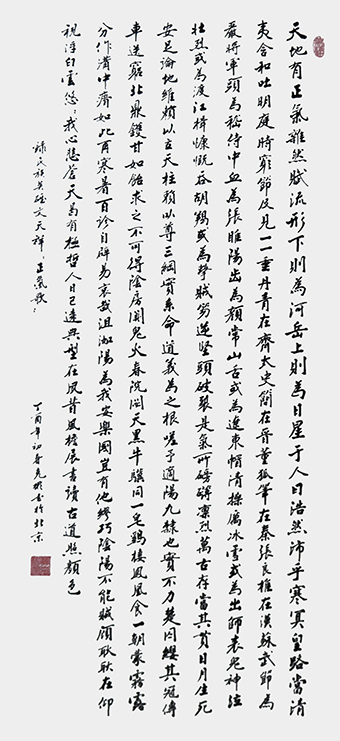 天地有正氣雜然賦流形下則為河岳上則為日星于人曰浩然沛乎塞冥皇路當清
夷含和吐明庭時窮節乃見一一垂丹青在齊太史簡在晉董狐筆在秦張良椎在漢蘇武節為
嚴將軍頭為嵇侍中血為張睢陽齒為顏常山舌或為遼東帽清操厲冰雪或為出師表鬼神泣
壯烈或為渡江楫慷慨吞胡羯或為擊賊笏逆豎頭破裂是氣所磅礴凜烈萬古存當其貫日月生死
安足論地維賴以立天柱賴以尊三綱實系命道義為之根嗟予遘陽九隸也實不力楚囚纓其冠傳
車送窮北鼎鑊甘如飴求之不可得陰房闃鬼火春院閟天黑牛驥同一皂鷄棲鳳凰食一朝蒙霧露
分作溝中瘠如此再寒暑百沴自辟易哀哉沮洳場為我安樂國豈有他繆巧陰陽不能賊顧耿耿在仰
視浮白雲悠：我心悲蒼天曷有極哲人日已遠典型在夙昔風檐展書讀古道照顏色
錄民族英雄文天祥，正氣歌：
丁酉年初春克明書於北京